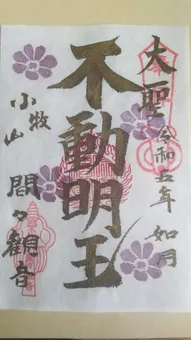 大聖
令和五年 如月
不動明王
小牧山
間々観音